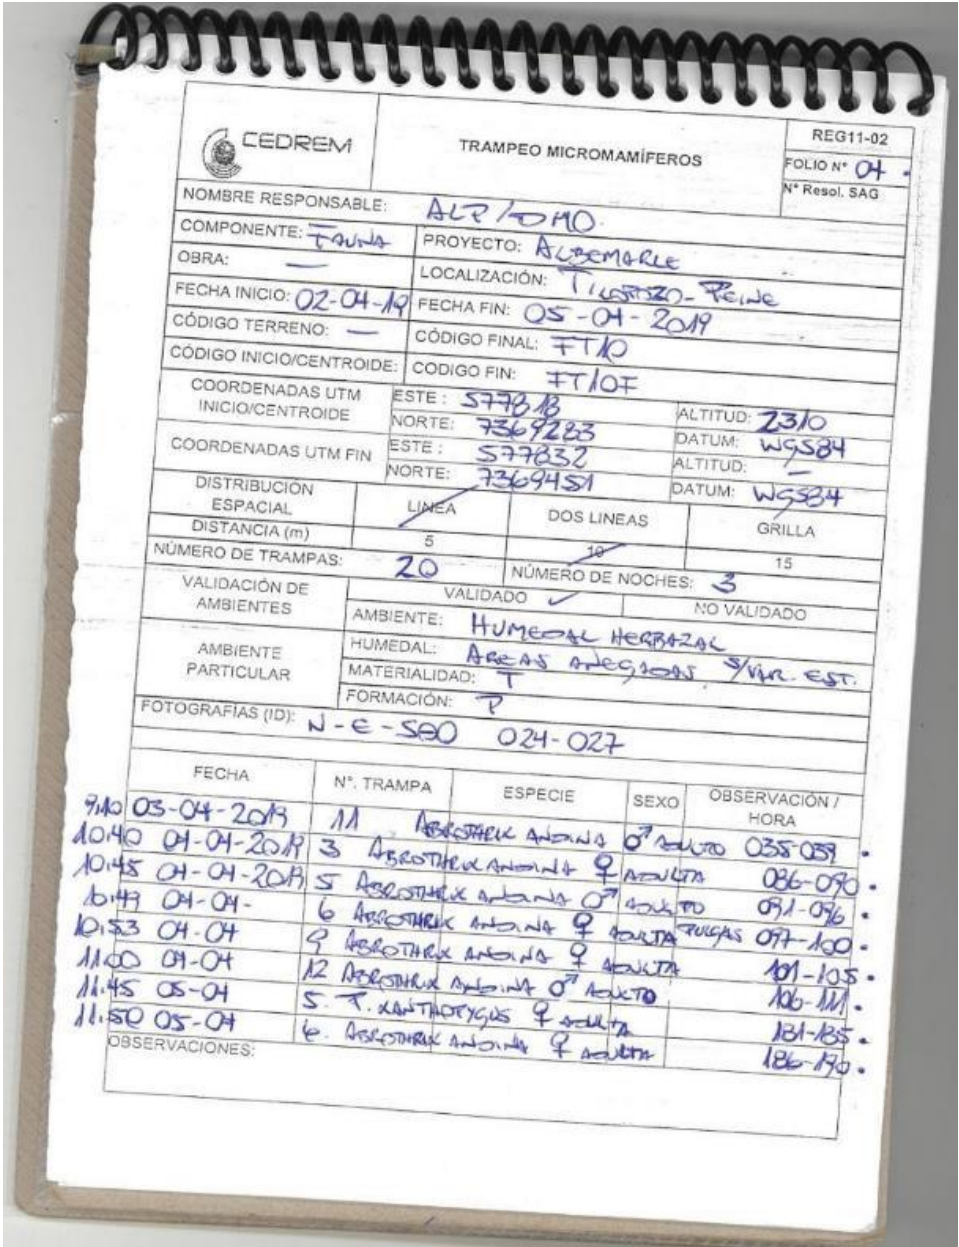 CEDREM
TRAMPEO MICROMAMÍFEROS
REG11-02
FOLIO N° 04.
N° Resol. SAG
NOMBRE RESPONSABLE: ALP/DMO.
COMPONENTE: FAUNA PROYECTO: ALBEMARLE
OBRA: — LOCALIZACIÓN: TILOPOZO-PEINE
FECHA INICIO: 02-04-19 FECHA FIN: 05-04-2019
CÓDIGO TERRENO: — CÓDIGO FINAL: FT10
CÓDIGO INICIO/CENTROIDE: CODIGO FIN: FT10F
COORDENADAS UTM INICIO/CENTROIDE ESTE: 577818 ALTITUD: 2310
NORTE: 7369283 DATUM: WGS84
COORDENADAS UTM FIN ESTE: 577832 ALTITUD: —
NORTE: 7369451 DATUM: WGS84
DISTRIBUCIÓN ESPACIAL LINEA DOS LINEAS GRILLA
DISTANCIA (m) 5 10 15
NÚMERO DE TRAMPAS: 20 NÚMERO DE NOCHES: 3
VALIDACIÓN DE AMBIENTES VALIDADO ✓ NO VALIDADO
AMBIENTE: HUMEDAL HERBAZAL
AMBIENTE PARTICULAR HUMEDAL: AREAS ANEGADAS S/VAR. EST.
MATERIALIDAD: T
FORMACIÓN: P
FOTOGRAFIAS (ID): N-E-S-O 024-027
FECHA N°. TRAMPA ESPECIE SEXO OBSERVACIÓN / HORA
9:10 03-04-2019 11 ABROTHRIX ANDINA ♂ ADULTO 035-039.
10:40 04-04-2019 3 ABROTHRIX ANDINA ♀ ADULTA 086-090.
10:45 04-04-2019 5 ABROTHRIX ANDINA ♂ ADULTO 091-096.
10:49 04-04- 6 ABROTHRIX ANDINA ♀ ADULTA PULGAS 097-100.
10:53 04-04 9 ABROTHRIX ANDINA ♀ ADULTA 101-105.
11:00 04-04 12 ABROTHRIX ANDINA ♂ ADULTO 106-111.
11:45 05-04 5. P. XANTHOPYGUS ♀ ADULTA 181-185.
11:50 05-04 6. ABROTHRIX ANDINA ♀ ADULTA 186-190.
OBSERVACIONES: